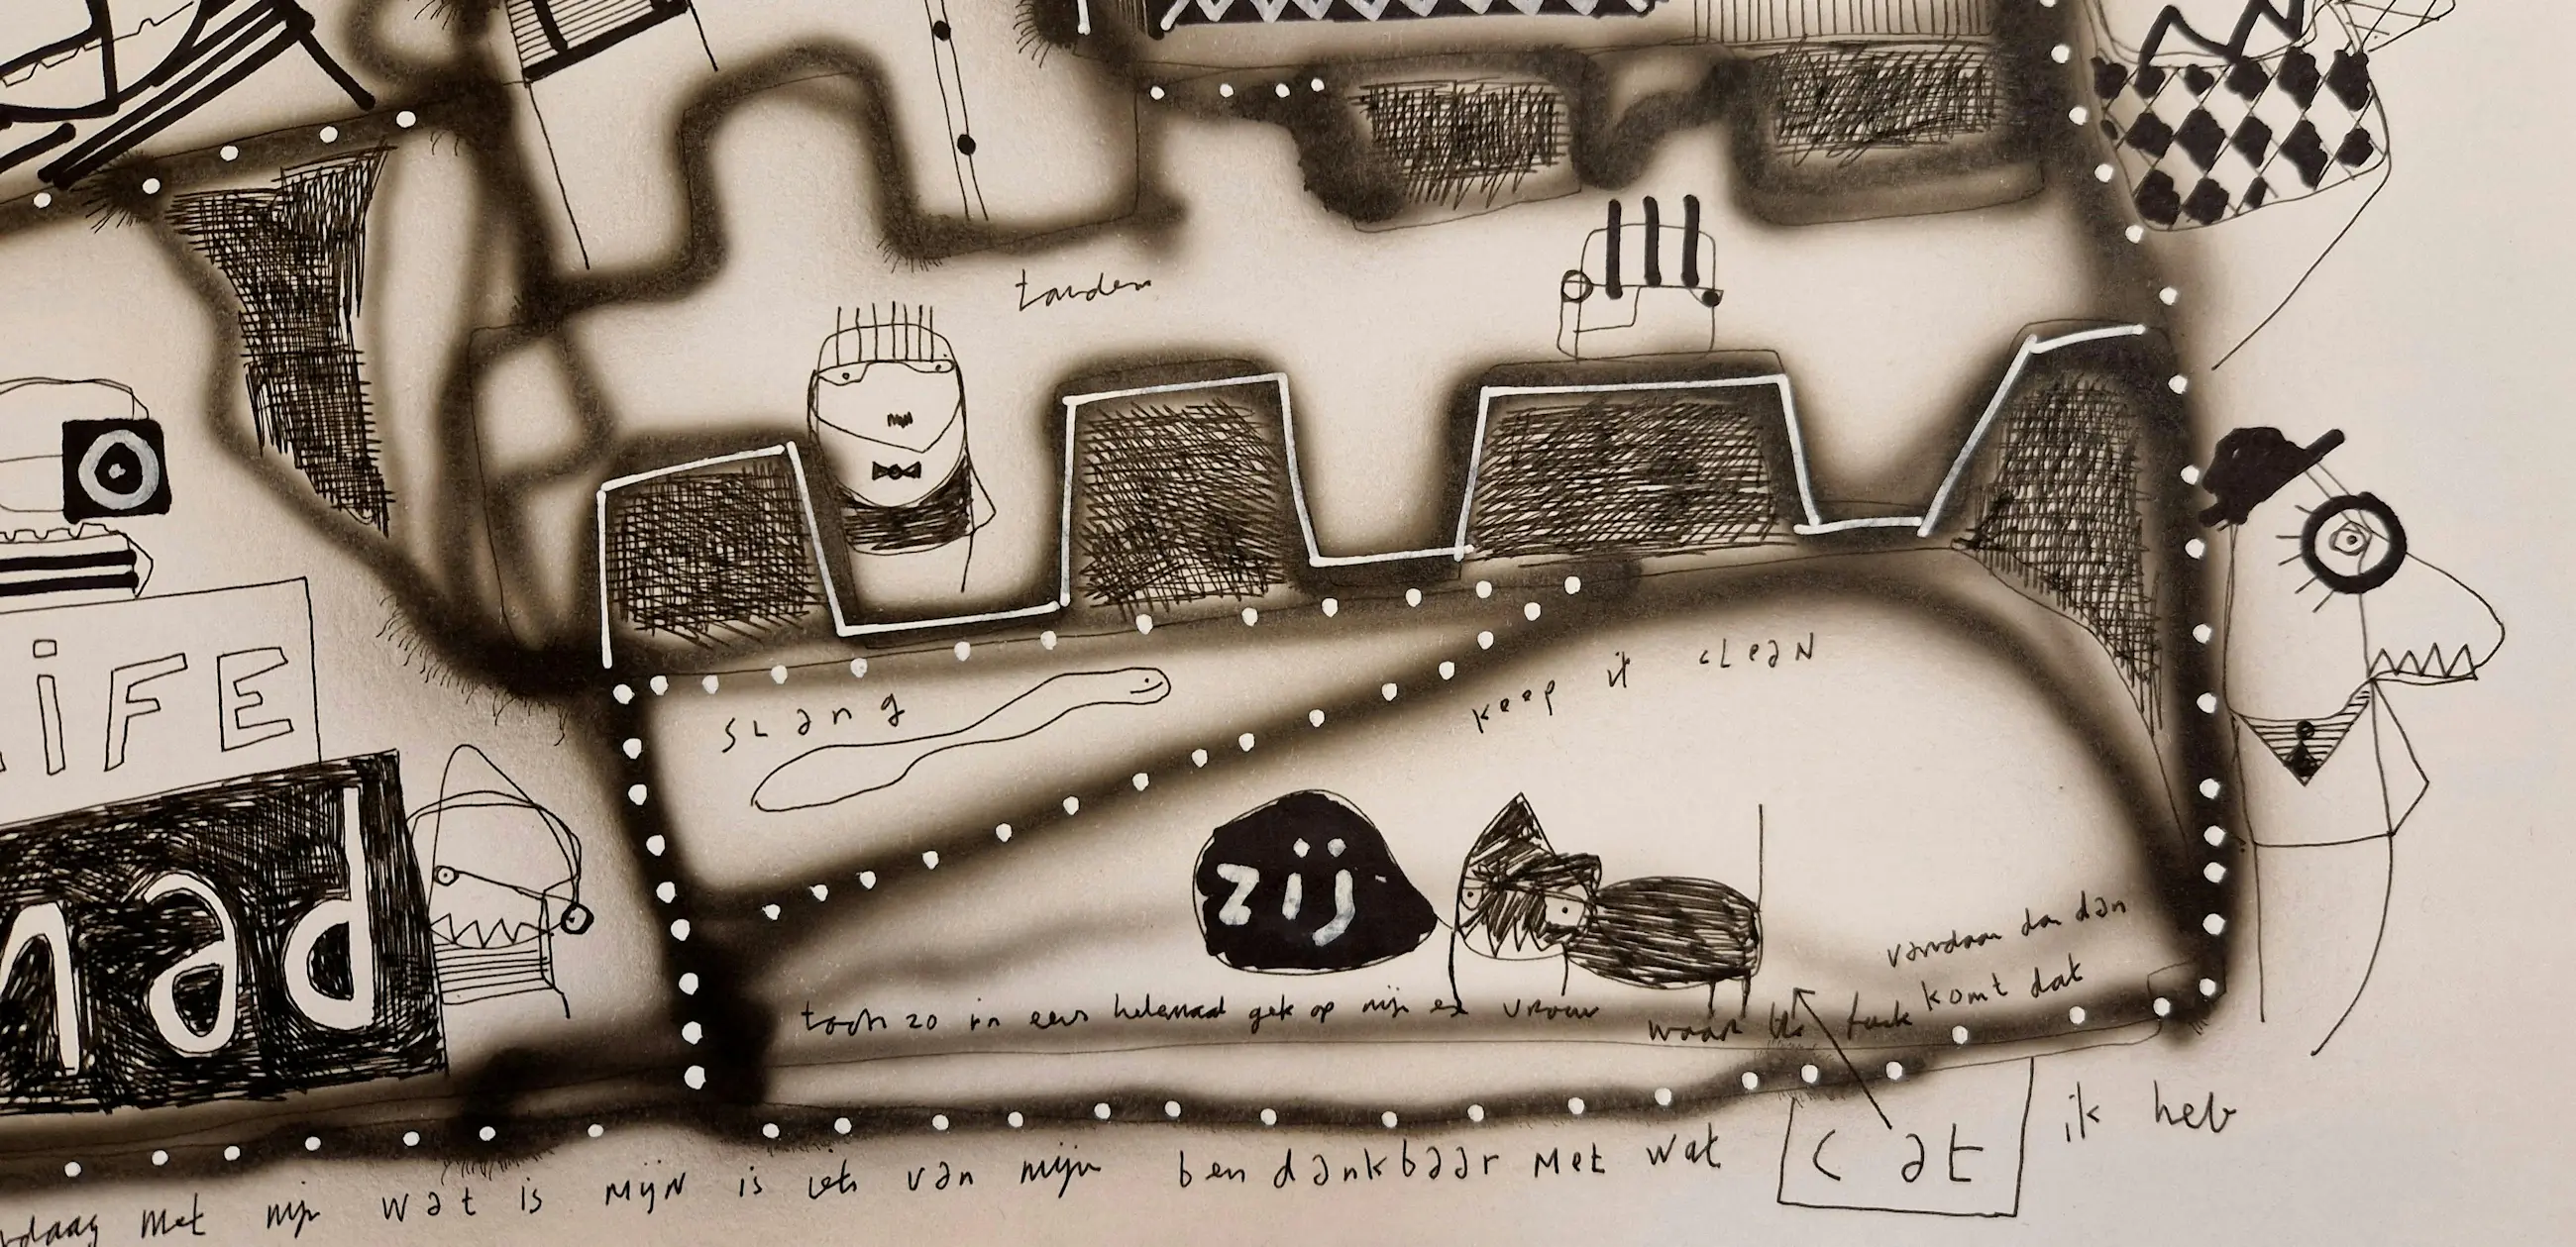 tanden
keep it cLean
sLang
iFE
zij
nad
vandaan dan dan
komt dat
toch zo in eens helemaal gek op mijn ex vrouw
waar the fuck
ik heb
cat
met mijn wat is mijn is iets van mijn ben dankbaar met wat